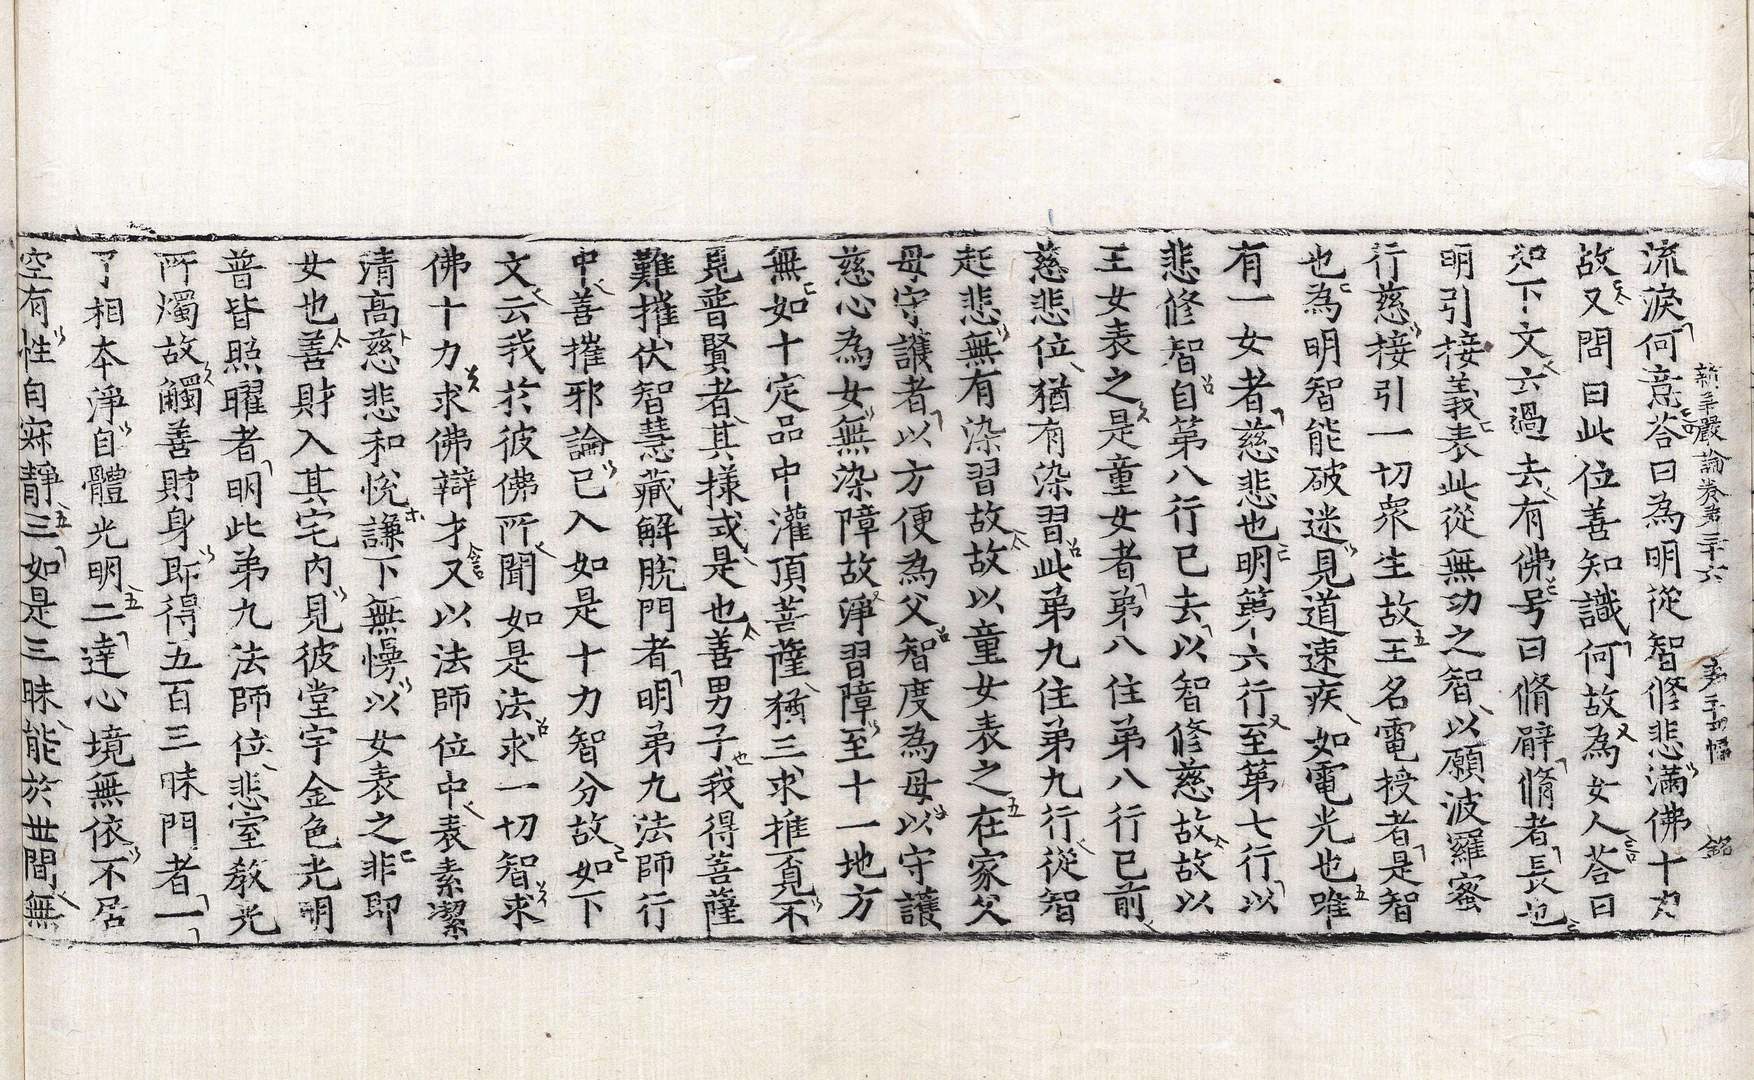 新華嚴論卷第三十六
流淚何意荅曰為明從智修悲滿佛十力
故又問曰此位善知識何故為女人荅曰
如下文云過去有佛号曰脩臂脩者長也
明引接義表此從無功之智以願波羅蜜
行慈接引一切衆生故王名電授者是智
也為明智能破迷見道速疾如電光也唯
有一女者慈悲也明第六行至第七行以
悲修智自第八行已去以智修慈故故以
王女表之是童女者第八住第八行已前
慈悲位猶有染習此第九住第九行從智
起悲無有染習故故以童女表之在家父
母守護者以方便為父智度為母以守護
慈心為女無染障故淨習障至十一地方
無如十定品中灌頂菩薩猶三求推覓不
見普賢者其樣式是也善男子我得菩薩
難摧伏智慧藏解脫門者明第九法師行
中善摧邪論已入如是十力智分故如下
文云我於彼佛所聞如是法求一切智求
佛十力求佛辯才又以法師位中表素潔
清高慈悲和悅謙下無慢以女表之非即
女也善財入其宅內見彼堂宇金色光明
普皆照曜者明此第九法師位悲室敎光
所燭故觸善財身即得五百三昧門者一
了相本淨自體光明二達心境無依不居
空有性自寂靜三如是三昧能於世間無